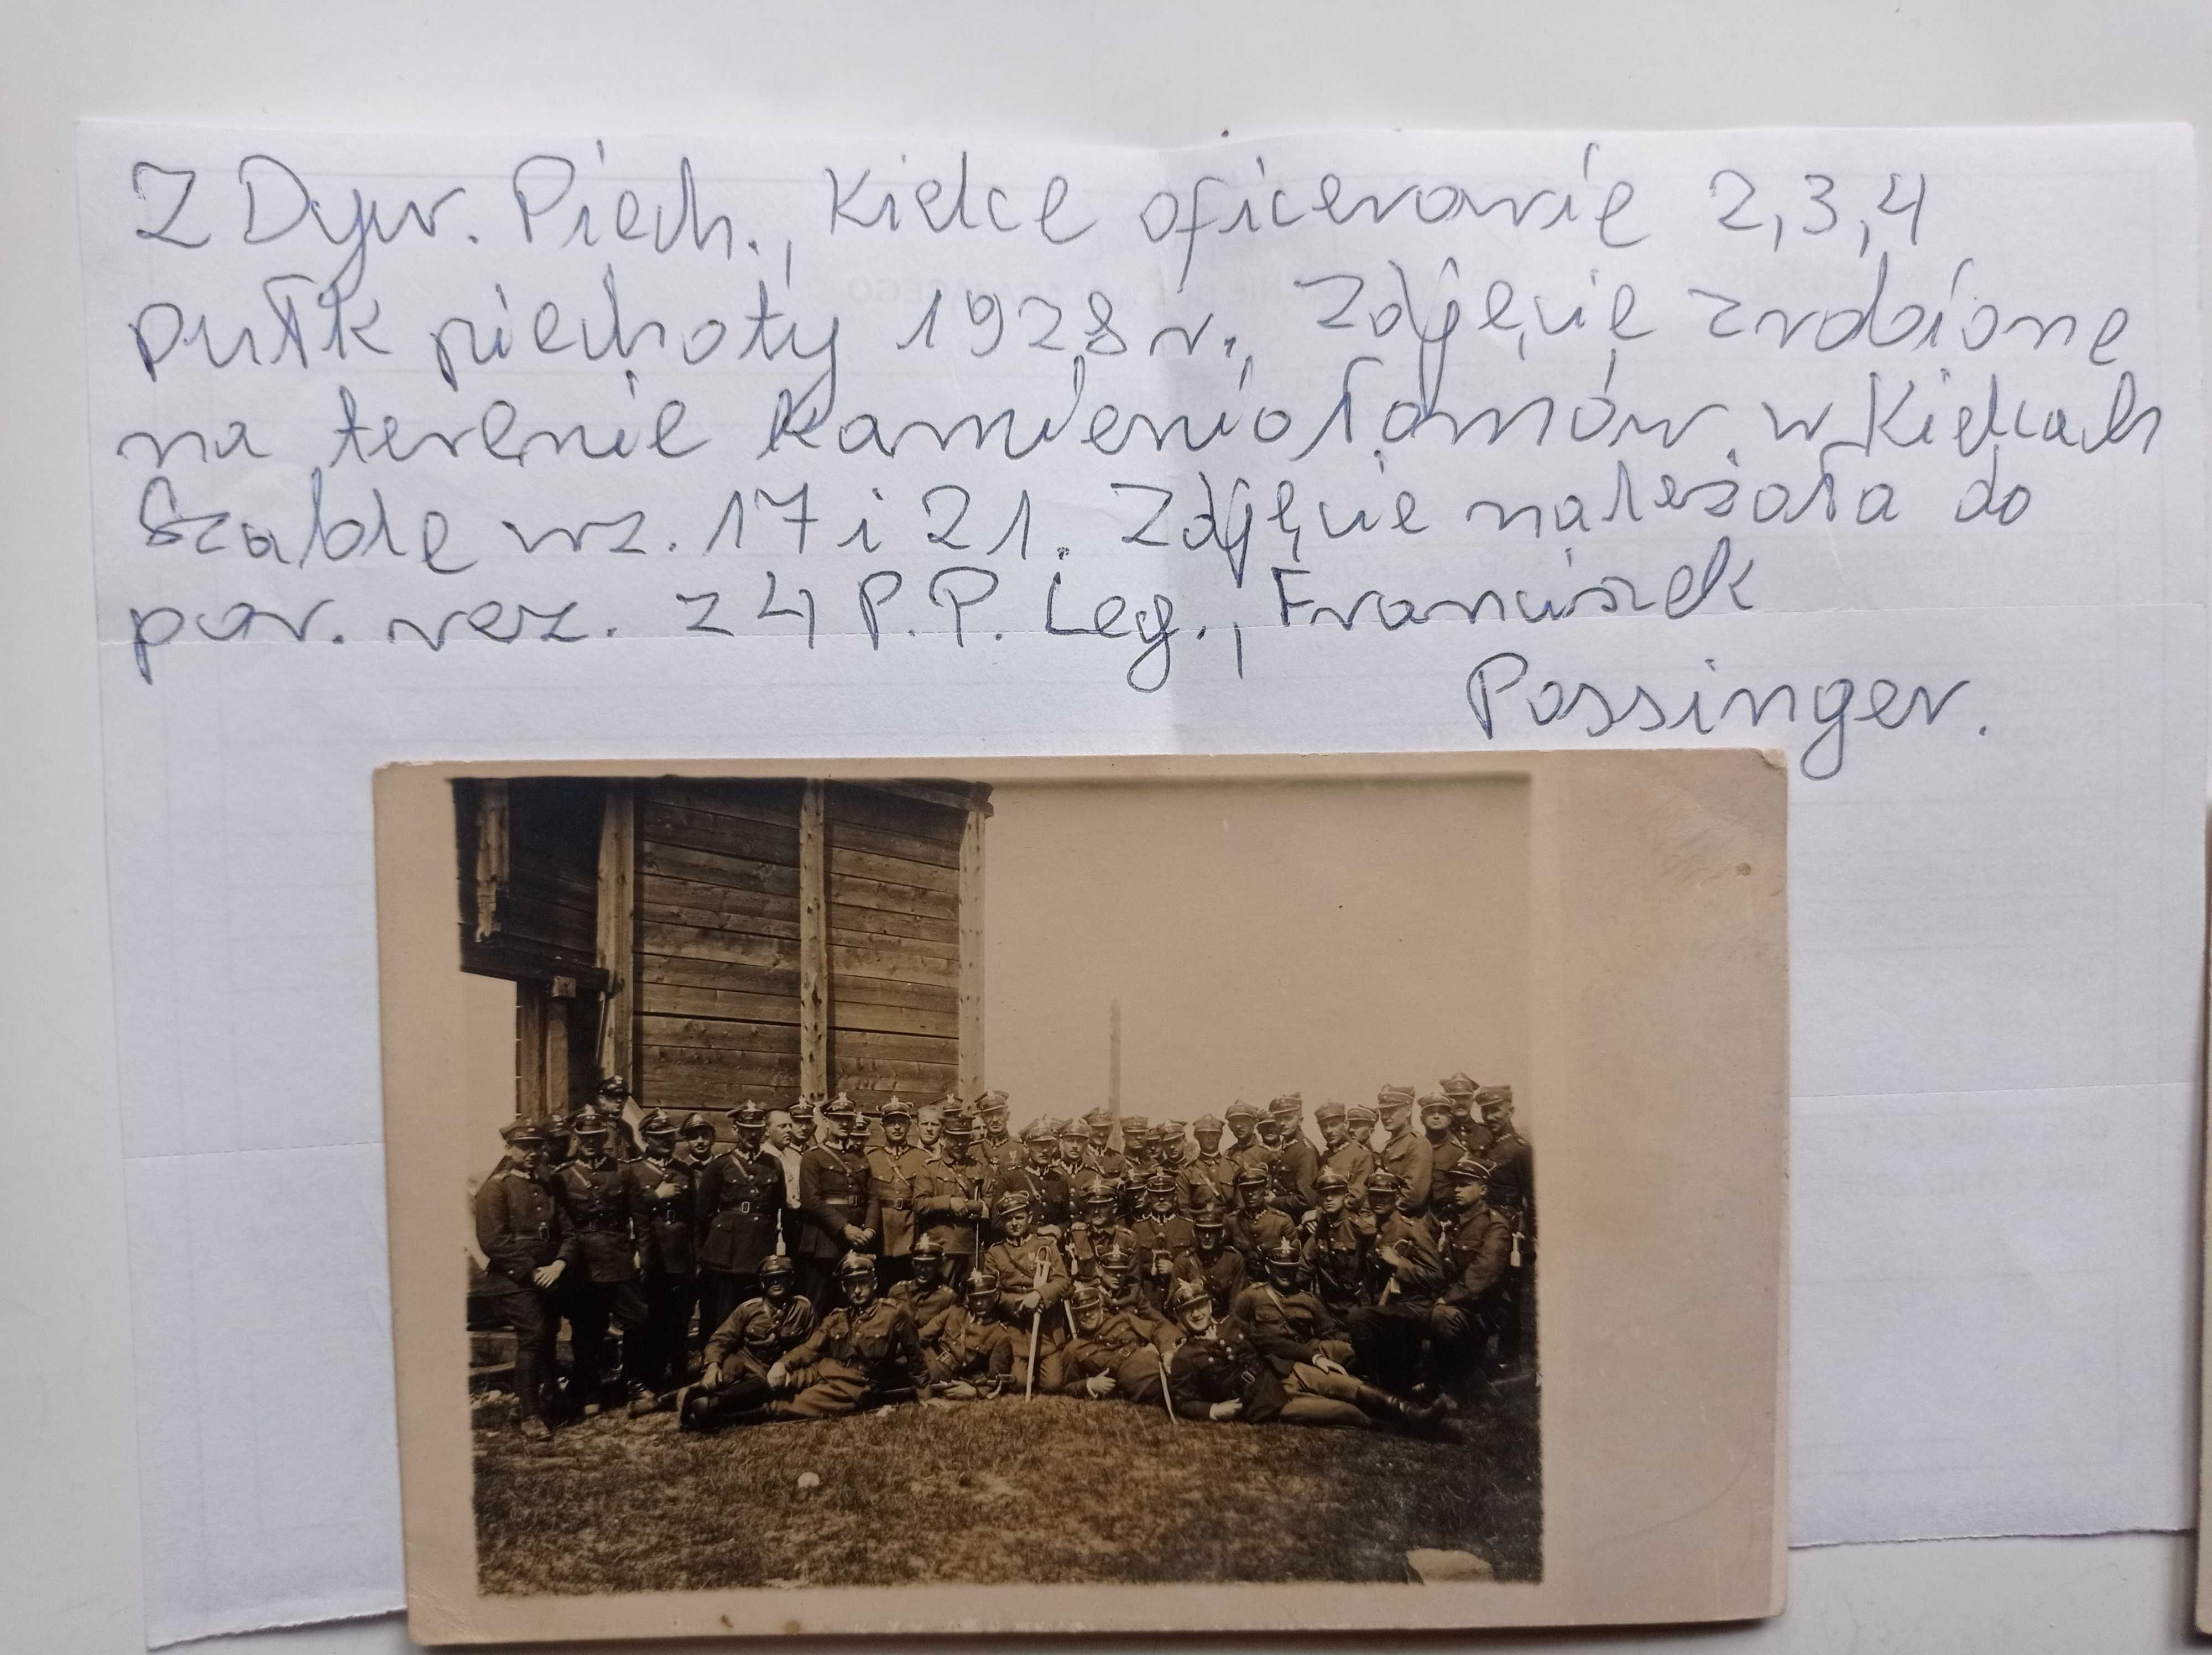 2 Dyw. Piech., Kielce oficerowie 2,3,4
pułk piechoty 1928 r., zdjęcie zrobione
na terenie kamieniołomów w Kielcach
Szable wz. 17 i 21. Zdjęcie należała do
por. rez. z 4 P.P. Leg., Franciszek
Possinger.